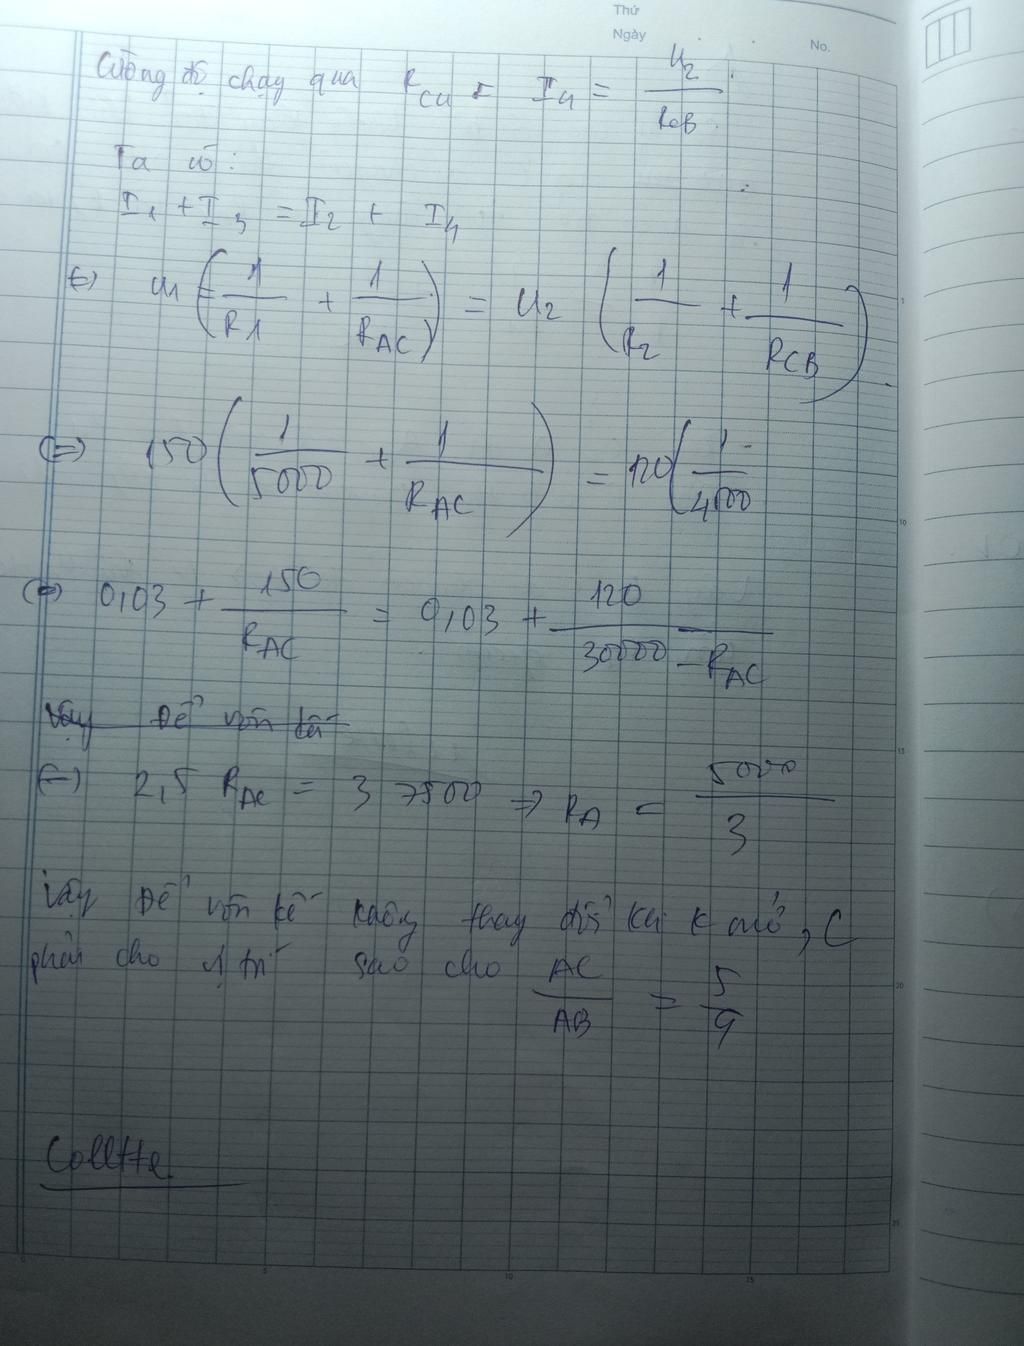 Thứ
Ngày . . No.
Cường độ chạy qua R_CB = I4 = U2 / R_CB.
Ta có:
I1 + I3 = I2 + I4
(=) U1 (1/R1 + 1/R_AC) = U2 (1/R2 + 1/R_CB)
(=) 150 (1/5000 + 1/R_AC) = 120 (1/4000
(=) 0,03 + 150/R_AC = 0,03 + 120/(30000 - R_AC)
Vậy Để vôn kế
(=) 2,5 R_AC = 37500 => R_A = 5000/3
Vậy Để vôn kế không thay đổi khi K mở, C
phải cho vị trí sao cho AC/AB = 5/9
Colltte
5
10
15
20
25
5
10
15